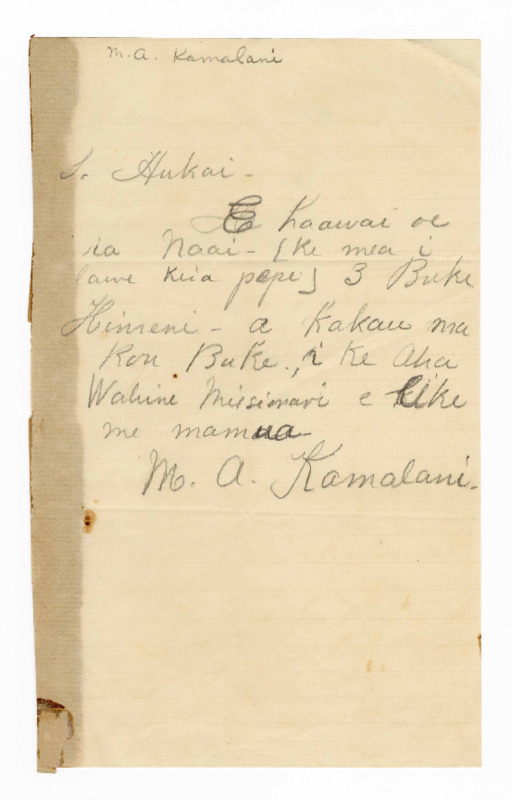 M. A. Kamalani
S. Hukai -
E haawai oe
ia Naai - [ke mea i
lawe keia pepe] 3 Buke
Himeni - a Kakau ma
Kou Buke., i ke Aha
Wahine Missionari e like
me mamua
M. A. Kamalani.